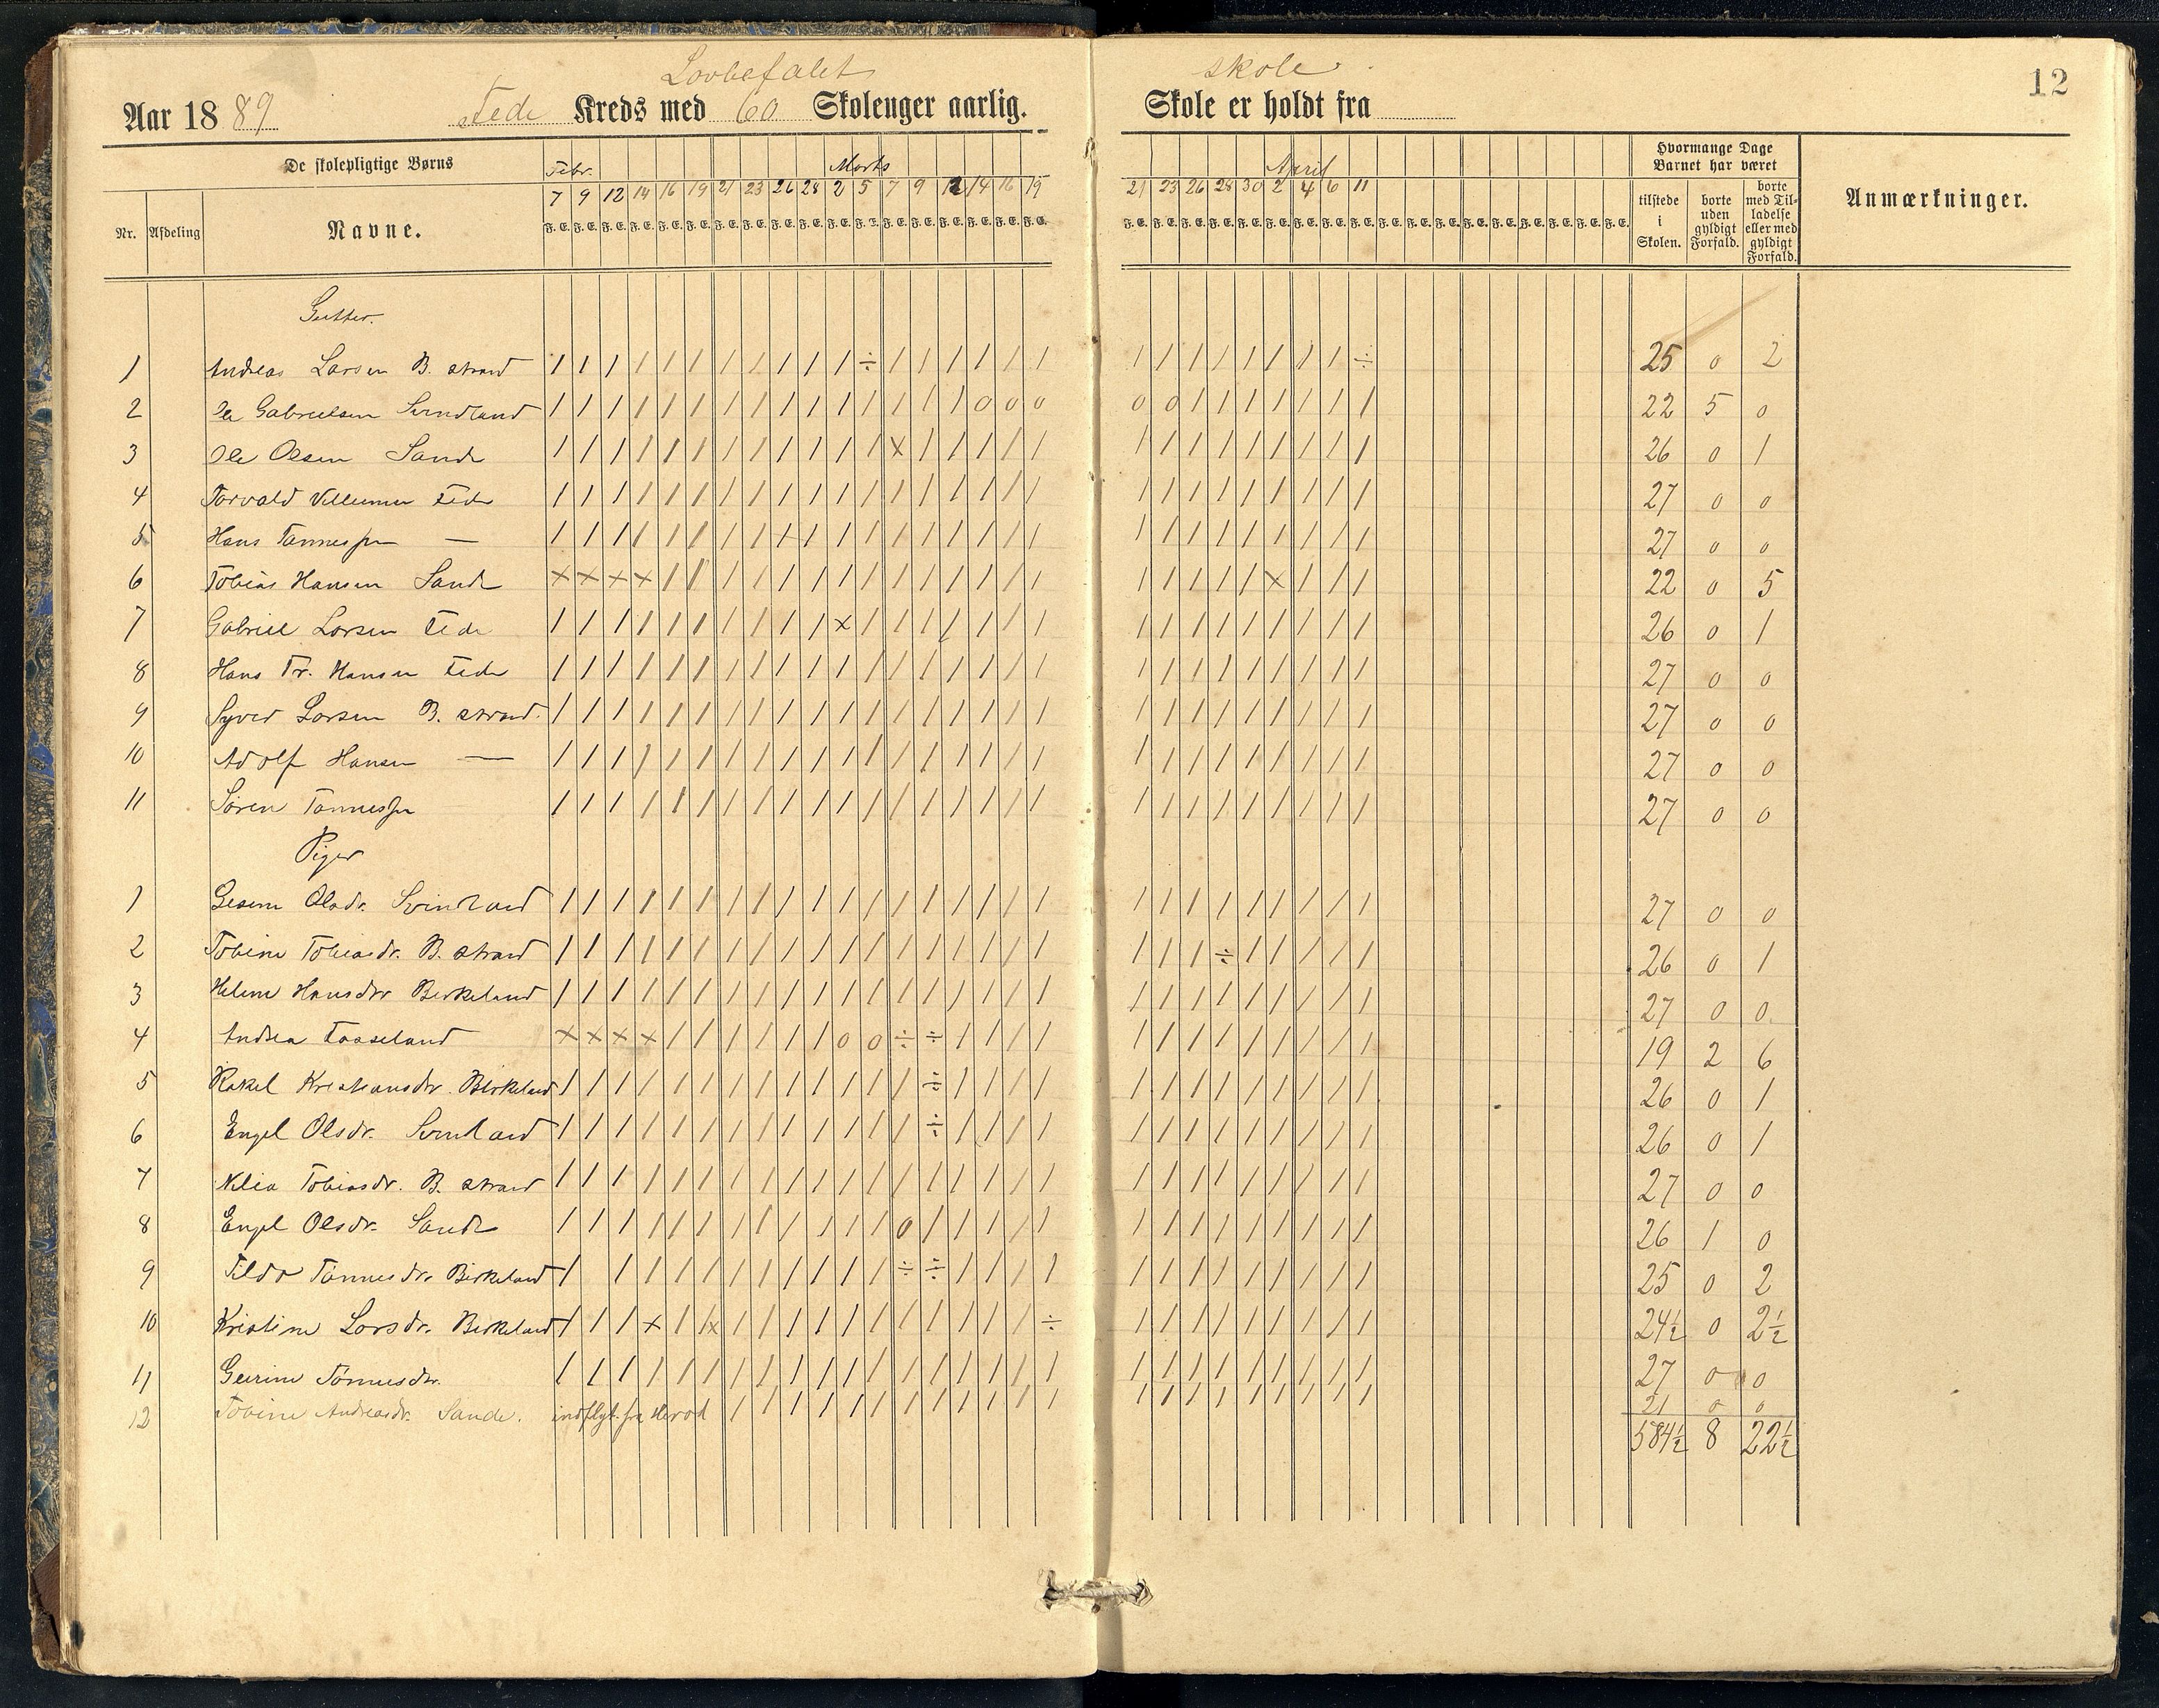 Lovbefalet skole
12
Aar 1889 Fede Kreds med 60 Skolenger aarlig. Skole er holdt fra
De skolepligtige Børns
Febr. Marts April
Hvormange Dage Barnet har været
Anmærkninger.
7 9 12 14 16 19 21 23 26 28 2 5 7 9 12 14 16 19 21 23 26 28 30 2 4 6 11
Nr. Afdeling Navne.
F. E. F. E. F. E. F. E. F. E. F. E. F. E. F. E. F. E. F. E. F. E. F. E. F. E. F. E. F. E. F. E. F. E. F. E.
F. E. F. E. F. E. F. E. F. E. F. E. F. E. F. E. F. E. F. E. F. E. F. E. F. E. F. E. F. E. F. E. F. E. F. E.
tilstede i Skolen.
borte uden gyldigt Forfald.
borte med Tilladelse eller med gyldigt Forfald.
Gutter.
1 Andreas Larsen B. strand / / / / / / / / / / / ÷ / / / / / / / / / / / / / / ÷ 25 0 2
2 Ole Gabrielsen Svindland / / / / / / / / / / / / / / / 0 0 0 0 0 / / / / / / / 22 5 0
3 Ole Olsen Sande / / / / / / / / / / / / x / / / / / / / / / / / / / / 26 0 1
4 Torvald Villumsen Fede / / / / / / / / / / / / / / / / / / / / / / / / / / / 27 0 0
5 Hans Tønnessen — / / / / / / / / / / / / / / / / / / / / / / / / / / / 27 0 0
6 Tobias Hansen Sande x x x x / / / / / / / / / / / / / / / / / / / x / / / 22 0 5
7 Gabriel Larsen Fede / / / / / / / / / / x / / / / / / / / / / / / / / / / 26 0 1
8 Hans Tr. Hansen Fede / / / / / / / / / / / / / / / / / / / / / / / / / / / 27 0 0
9 Syver Larsen B. strand. / / / / / / / / / / / / / / / / / / / / / / / / / / / 27 0 0
10 Adolf Hansen — / / / / / / / / / / / / / / / / / / / / / / / / / / / 27 0 0
11 Søren Tønnessen / / / / / / / / / / / / / / / / / / / / / / / / / / / 27 0 0
Piger
1 Gesine Olsdr. Svindland / / / / / / / / / / / / / / / / / / / / / / / / / / / 27 0 0
2 Tobine Tobiasdr. B. strand / / / / / / / / / / / / / / / / / / / / / ÷ / / / / / 26 0 1
3 Helene Hansdtr Birkeland / / / / / / / / / / / / / / / / / / / / / / / / / / / 27 0 0.
4 Andrea x x x x / / / / / / 0 0 ÷ ÷ / / / / / / / / / / / / / 19 2 6
5 Rakel Kristiansdtr. Birkeland / / / / / / / / / / / / / ÷ / / / / / / / / / / / / / 26 0 1
6 Engel Olsdr. Svindland / / / / / / / / / / / / / ÷ / / / / / / / / / / / / / 26 0 1
7 Tobiasdr. B. strand / / / / / / / / / / / / / / / / / / / / / / / / / / / 27 0 0
8 Engel Olsdr. Sande / / / / / / / / / / / / 0 / / / / / / / / / / / / / / 26 1 0
9 Tønnesdr. Birkeland / / / / / / / / / / / ÷ ÷ / / / / / / / / / / / / / 25 0 2
10 Kristine Larsdr. Birkeland / / / x / /x / / / / / / / / / / / ÷ / / / / / / / / / 24½ 0 2½
11 Tønnesdtr. / / / / / / / / / / / / / / / / / / / / / / / / / / / 27 0 0
12 Tobine Andreasdr. Sande. indflyt. fra / / / / / / / / / / / / / / / / / / / / / 21 0 0
584½ 8 22½